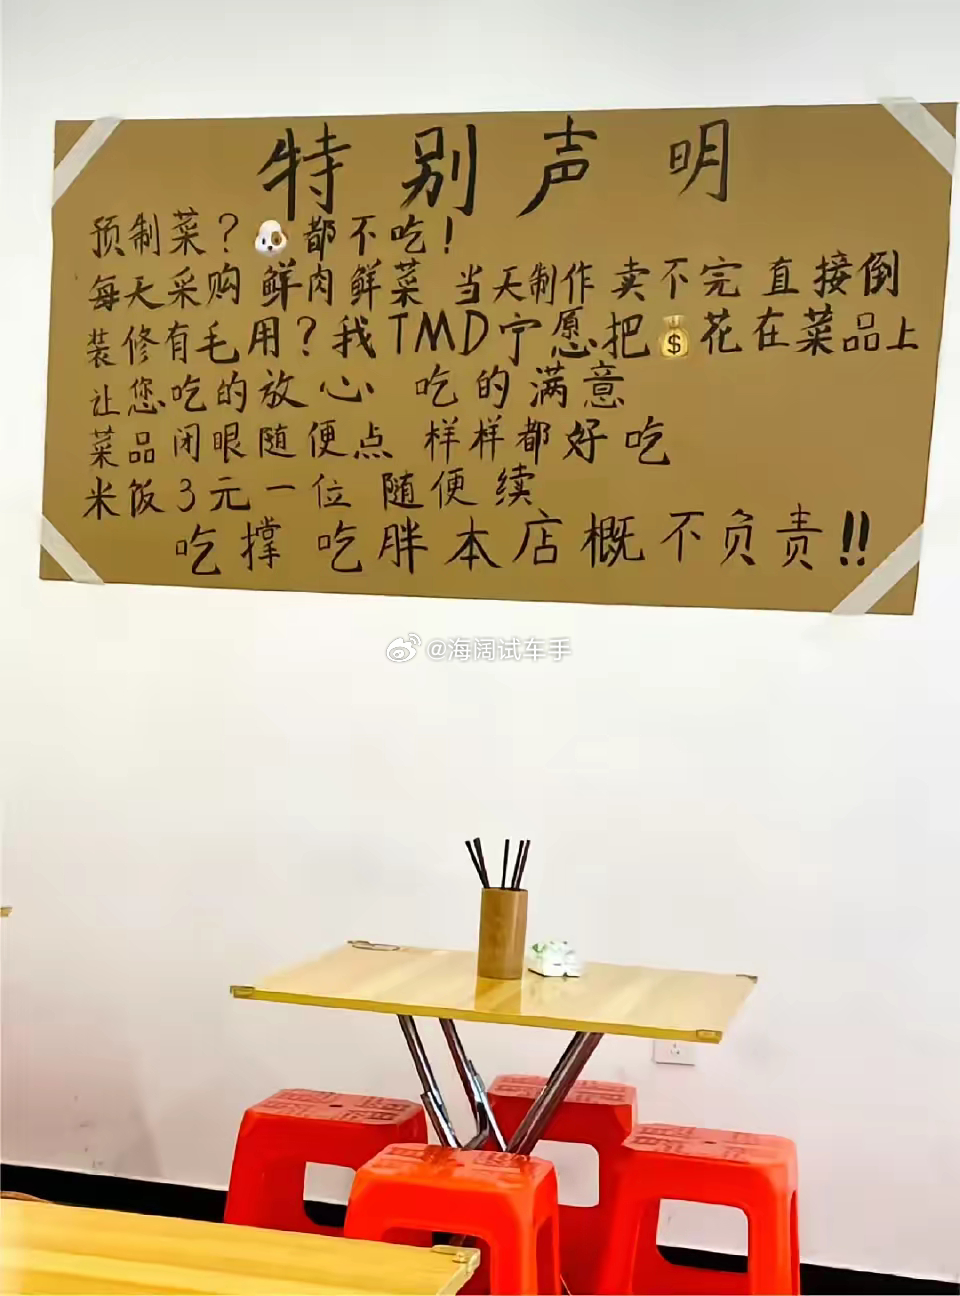 特别声明
预制菜？🐶都不吃！
每天采购 鲜肉鲜菜 当天制作 卖不完 直接倒
装修有毛用？我TMD宁愿把💰花在菜品上
让您吃的放心 吃的满意
菜品闭眼随便点 样样都好吃
米饭3元一位 随便续
吃撑 吃胖本店概不负责!!
@海阔试车手